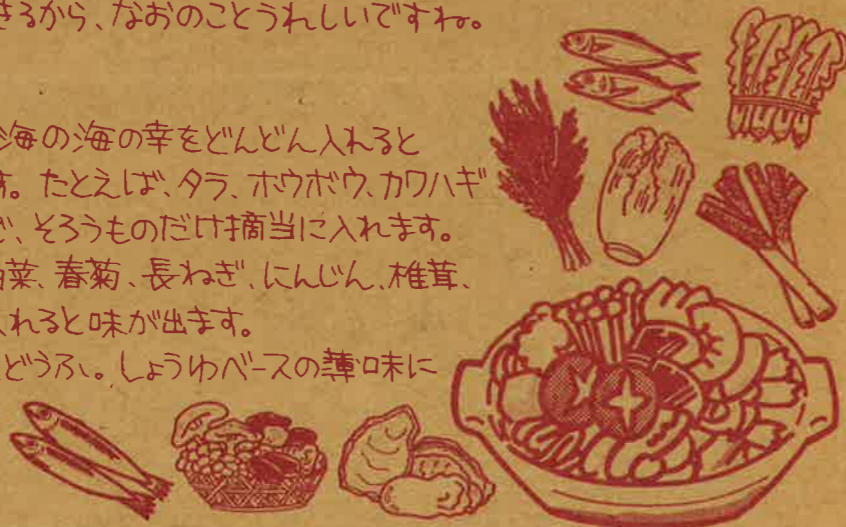 きるから、なおのことうれしいですね。
海の海の幸をどんどん入れると
す。たとえば、タラ、ホウボウ、カワハギ
ど、そろうものだけ摘当に入れます。
白菜、春菊、長ねぎ、にんじん、椎茸、
入れると味が出ます。
どうふ。しょうゆベースの薄味に